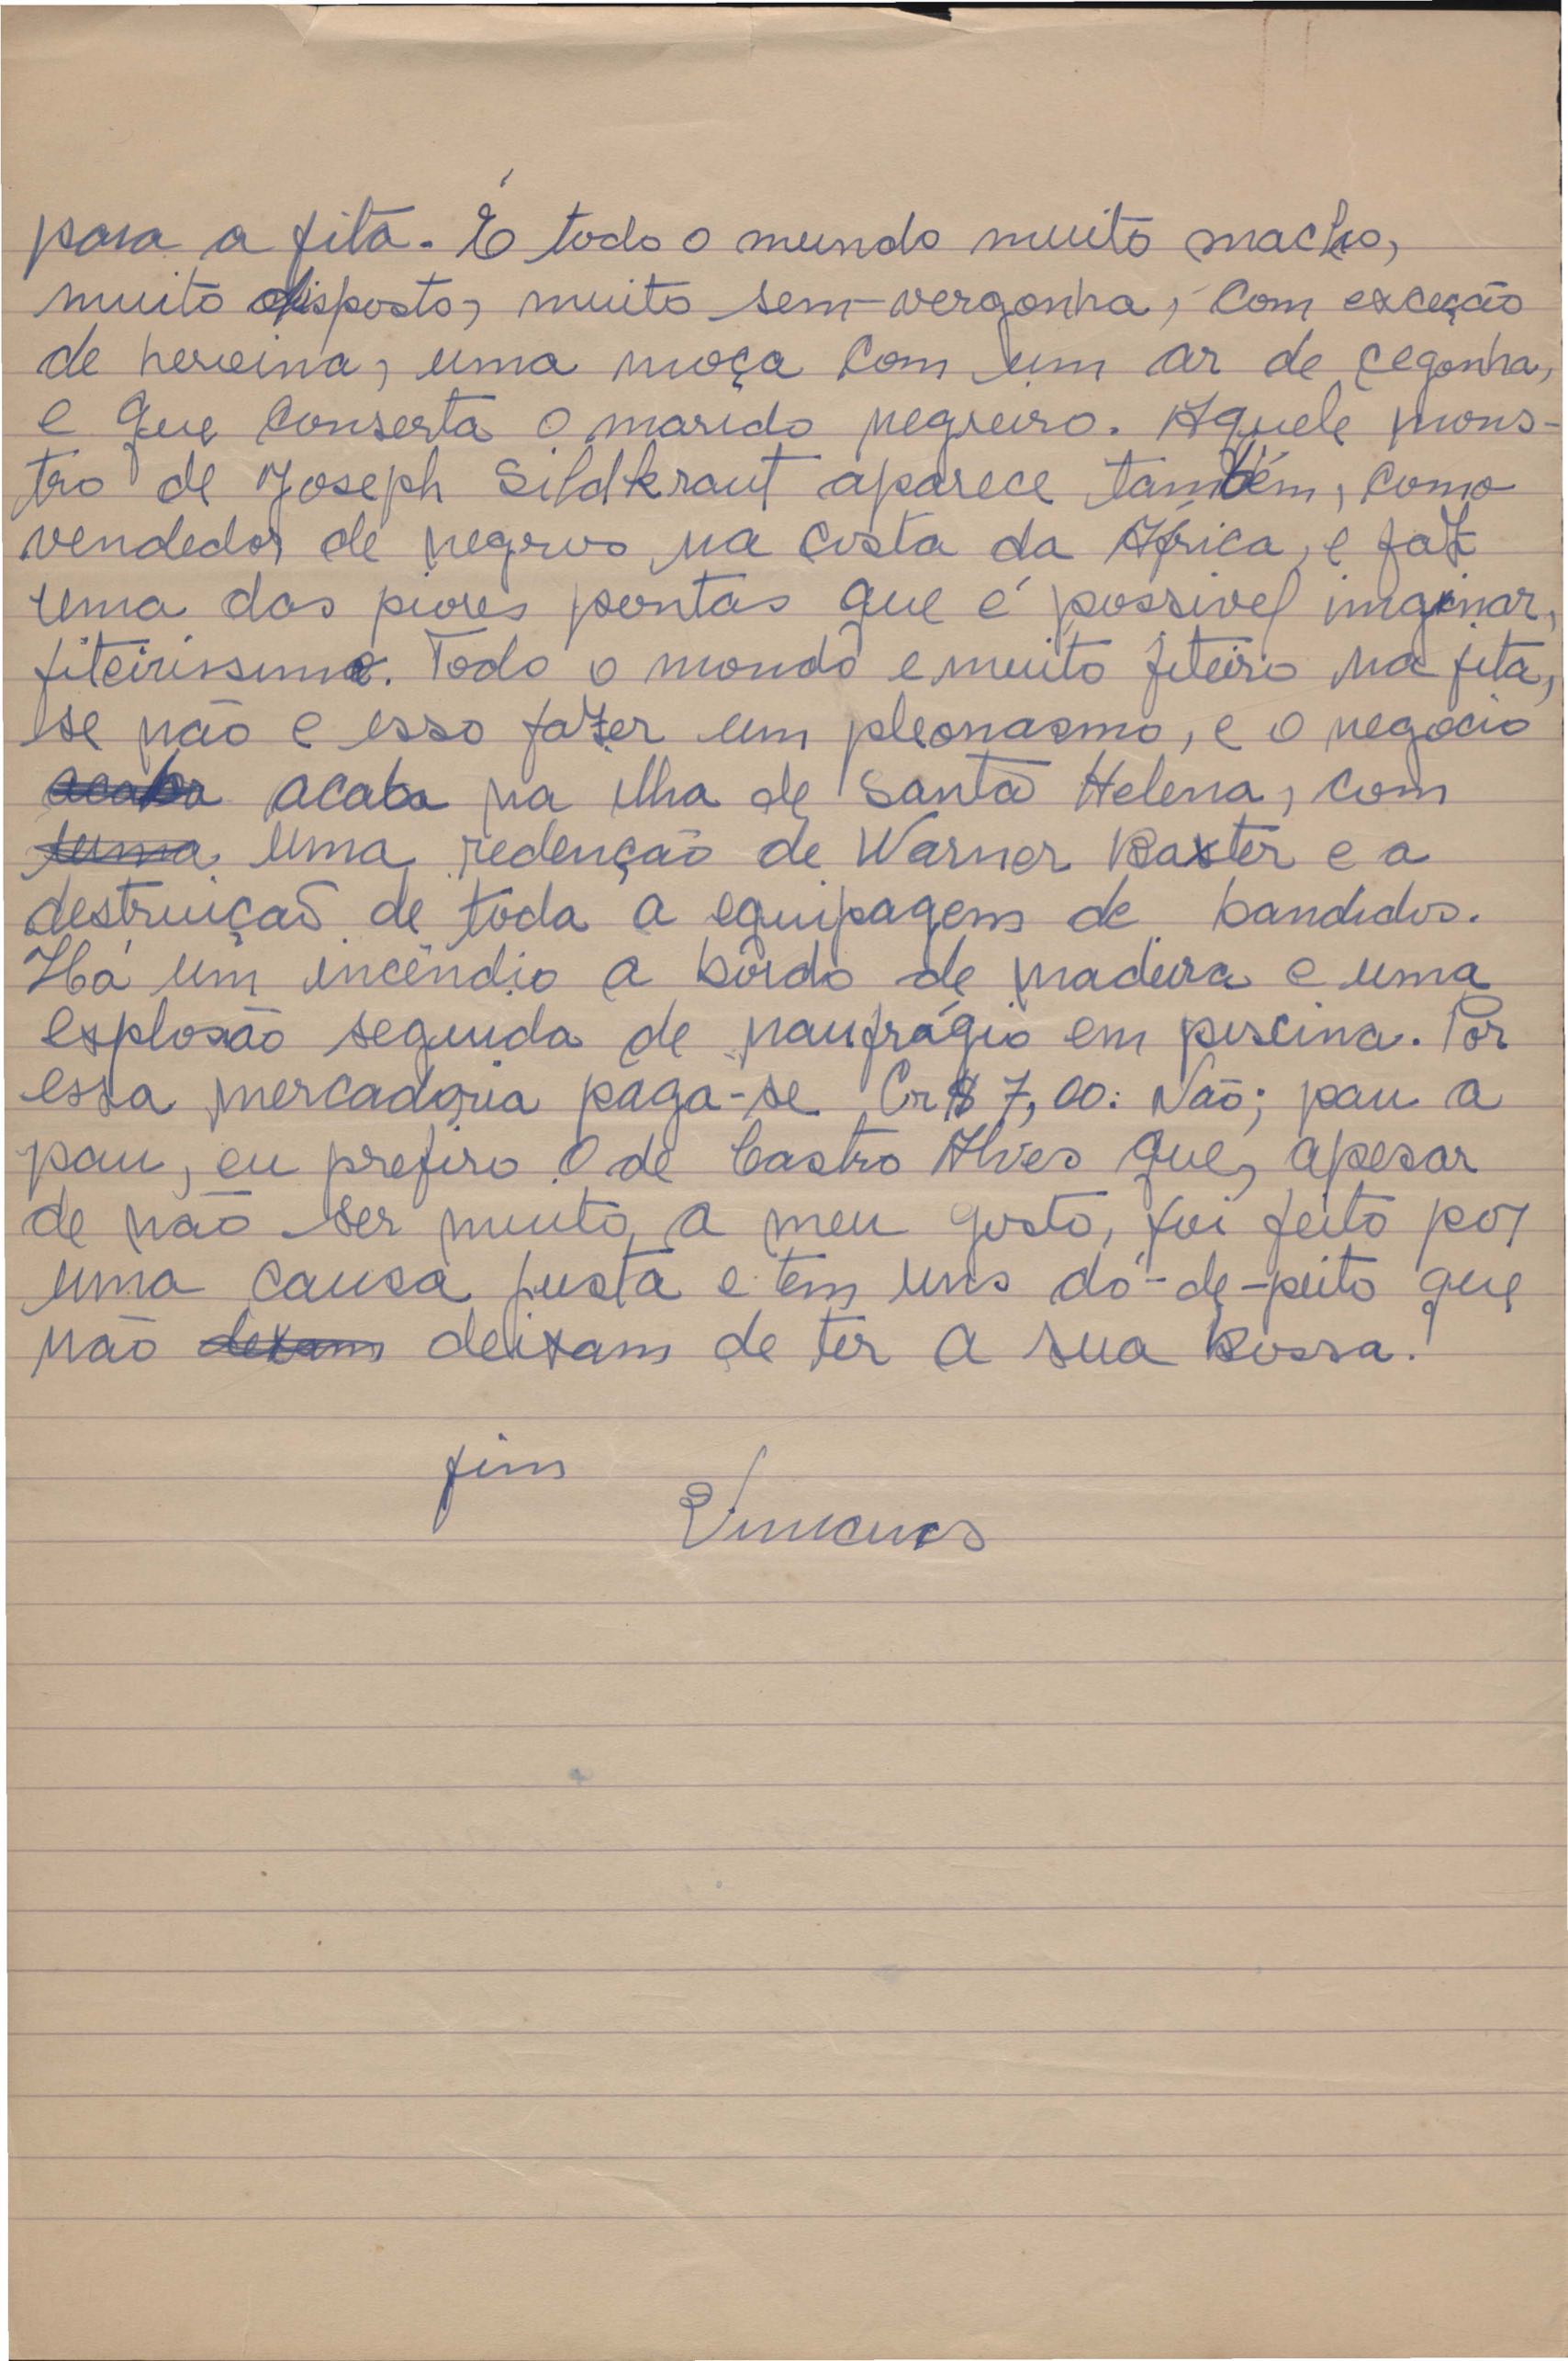 para a fita. É todo o mundo muito macho,
muito disposto, muito sem-vergonha, com exceção
de heroina, uma moça com um ar de cegonha,
e que conserta o marido negreiro. Aquele mons-
tro de Joseph Sildkraut aparece também, como
vendedor de negros na costa da África, e faz
uma das piores pontas que é possivel imaginar,
fiteirissimo. Todo o mondo e muito fiteiro na fita,
se não e isso fazer um pleonasmo, e o negocio
acaba acaba na ilha de Santa Helena, com
uma uma redenção de Warner Baxter e a
destruição de toda a equipagem de bandidos.
Há um incêndio a bordo de madeira e uma
explosão seguida de naufrágio em piscina. Por
essa mercadoria paga-se Cr$ 7,00: Não; pau a
pau, eu prefiro o de Castro Alves que, apesar
de não ser muito a meu gosto, foi feito por
uma causa justa e tem uns dó-de-peito que
não dexam deixam de ter a sua bossa.
fim
Vinicius